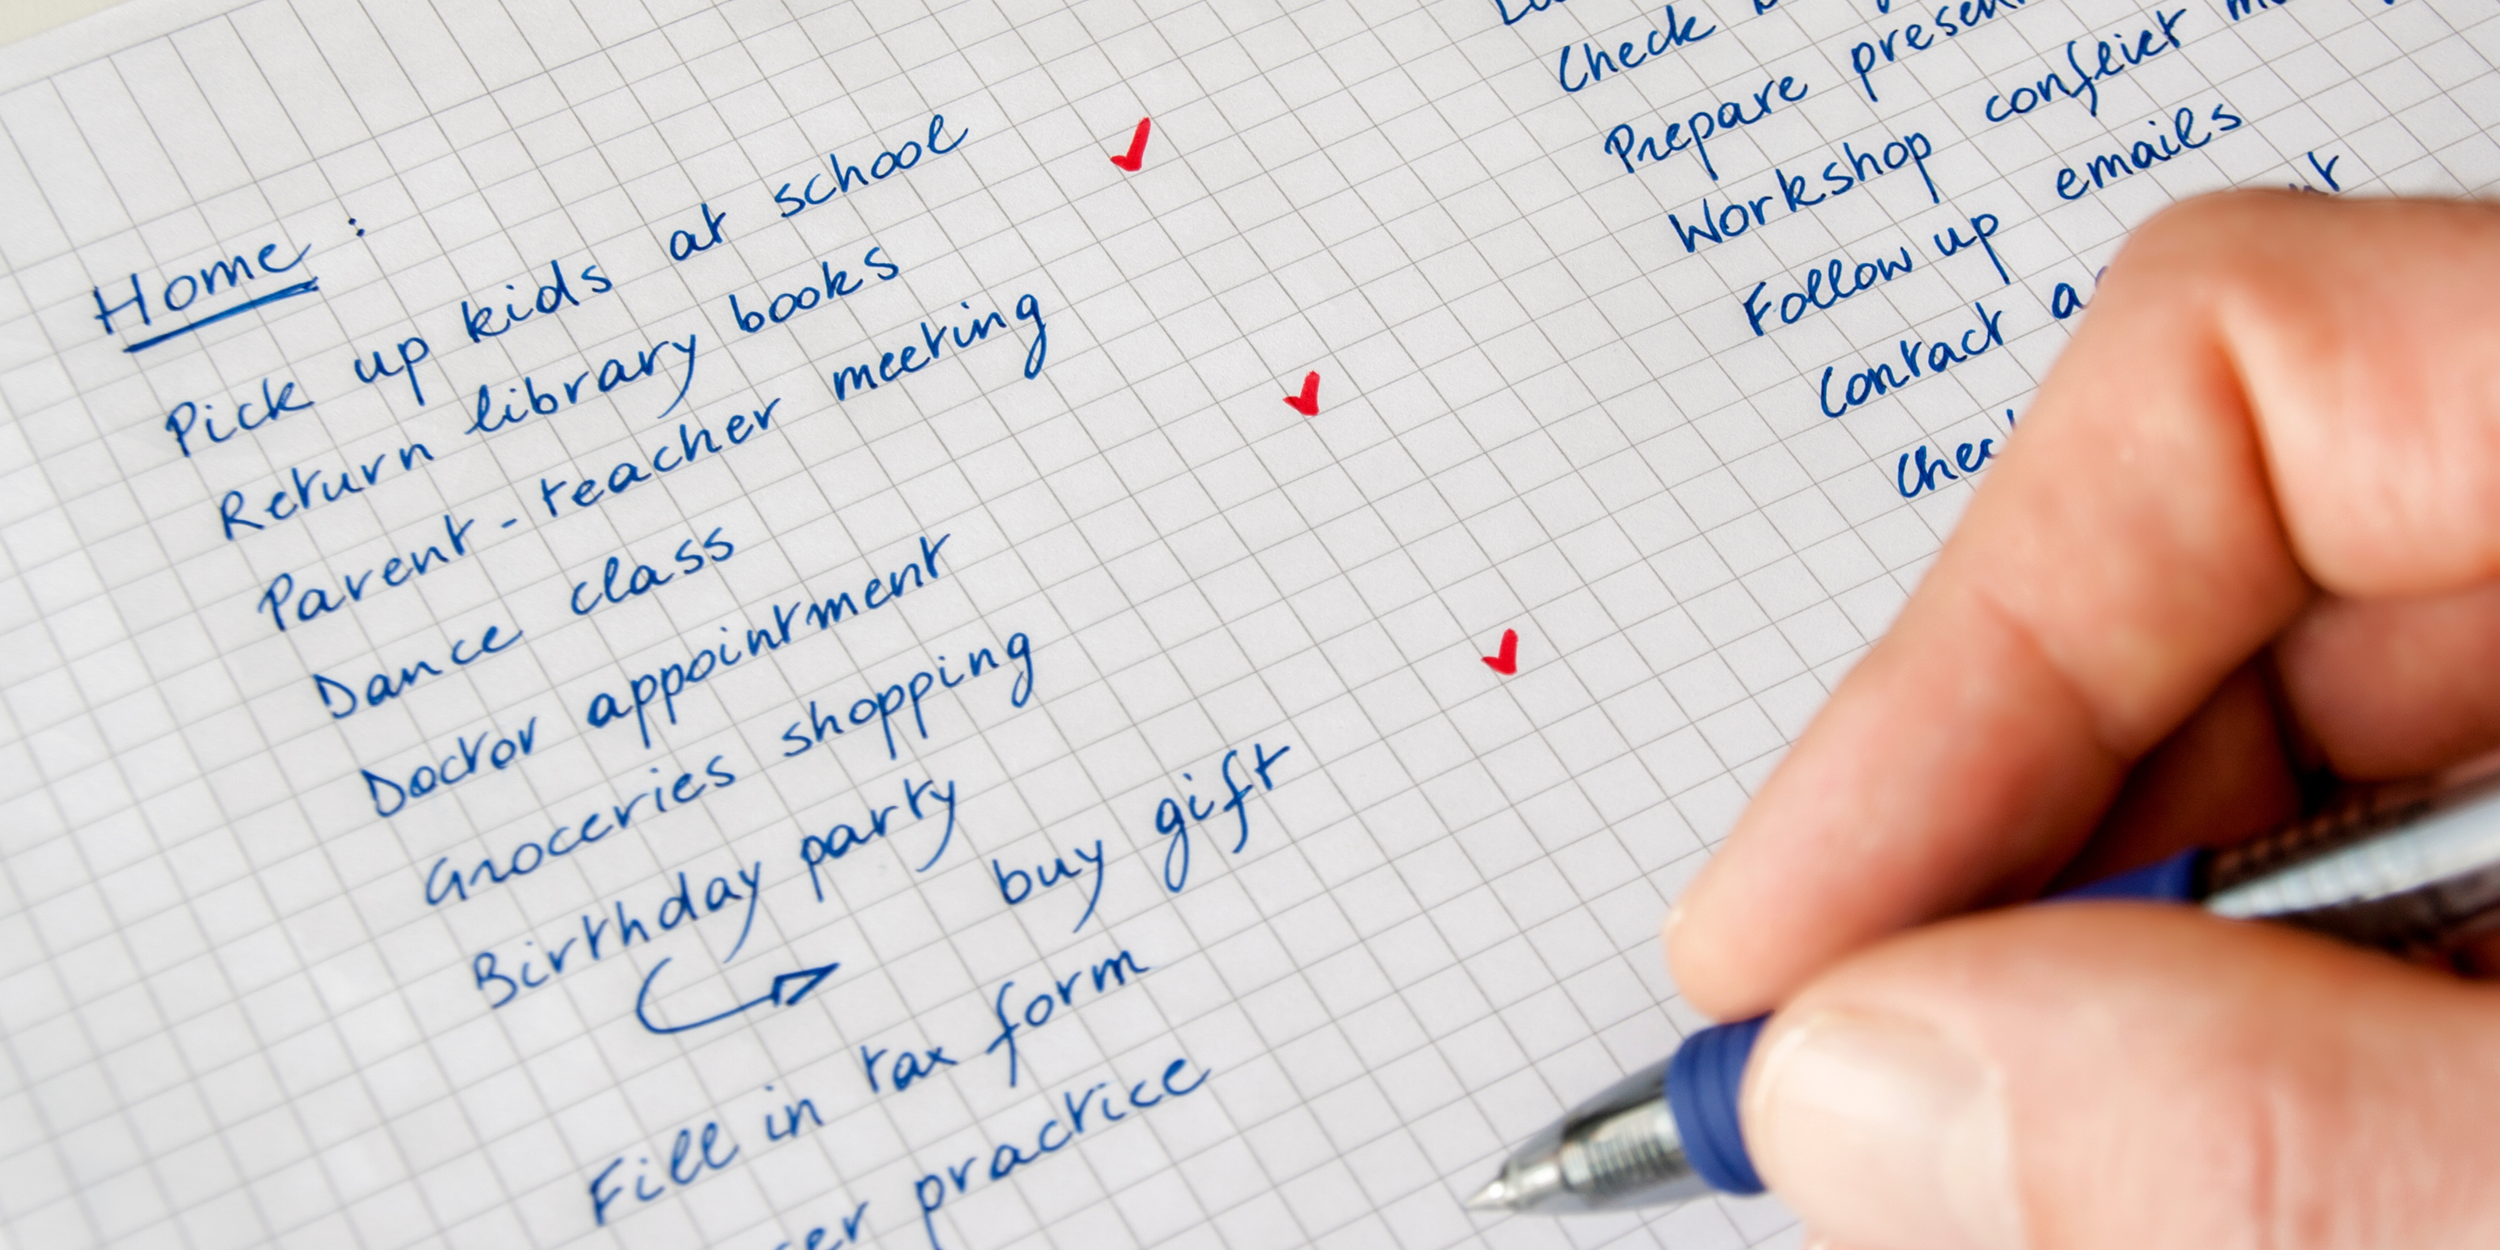 Home :
Pick up kids at school
Return library books
Parent - teacher meeting
Dance class
Doctor appointment
Groceries shopping
Birthday party
buy gift
Fill in tax form
practice
Check
Prepare
Workshop conflict
Follow up emails
Contact